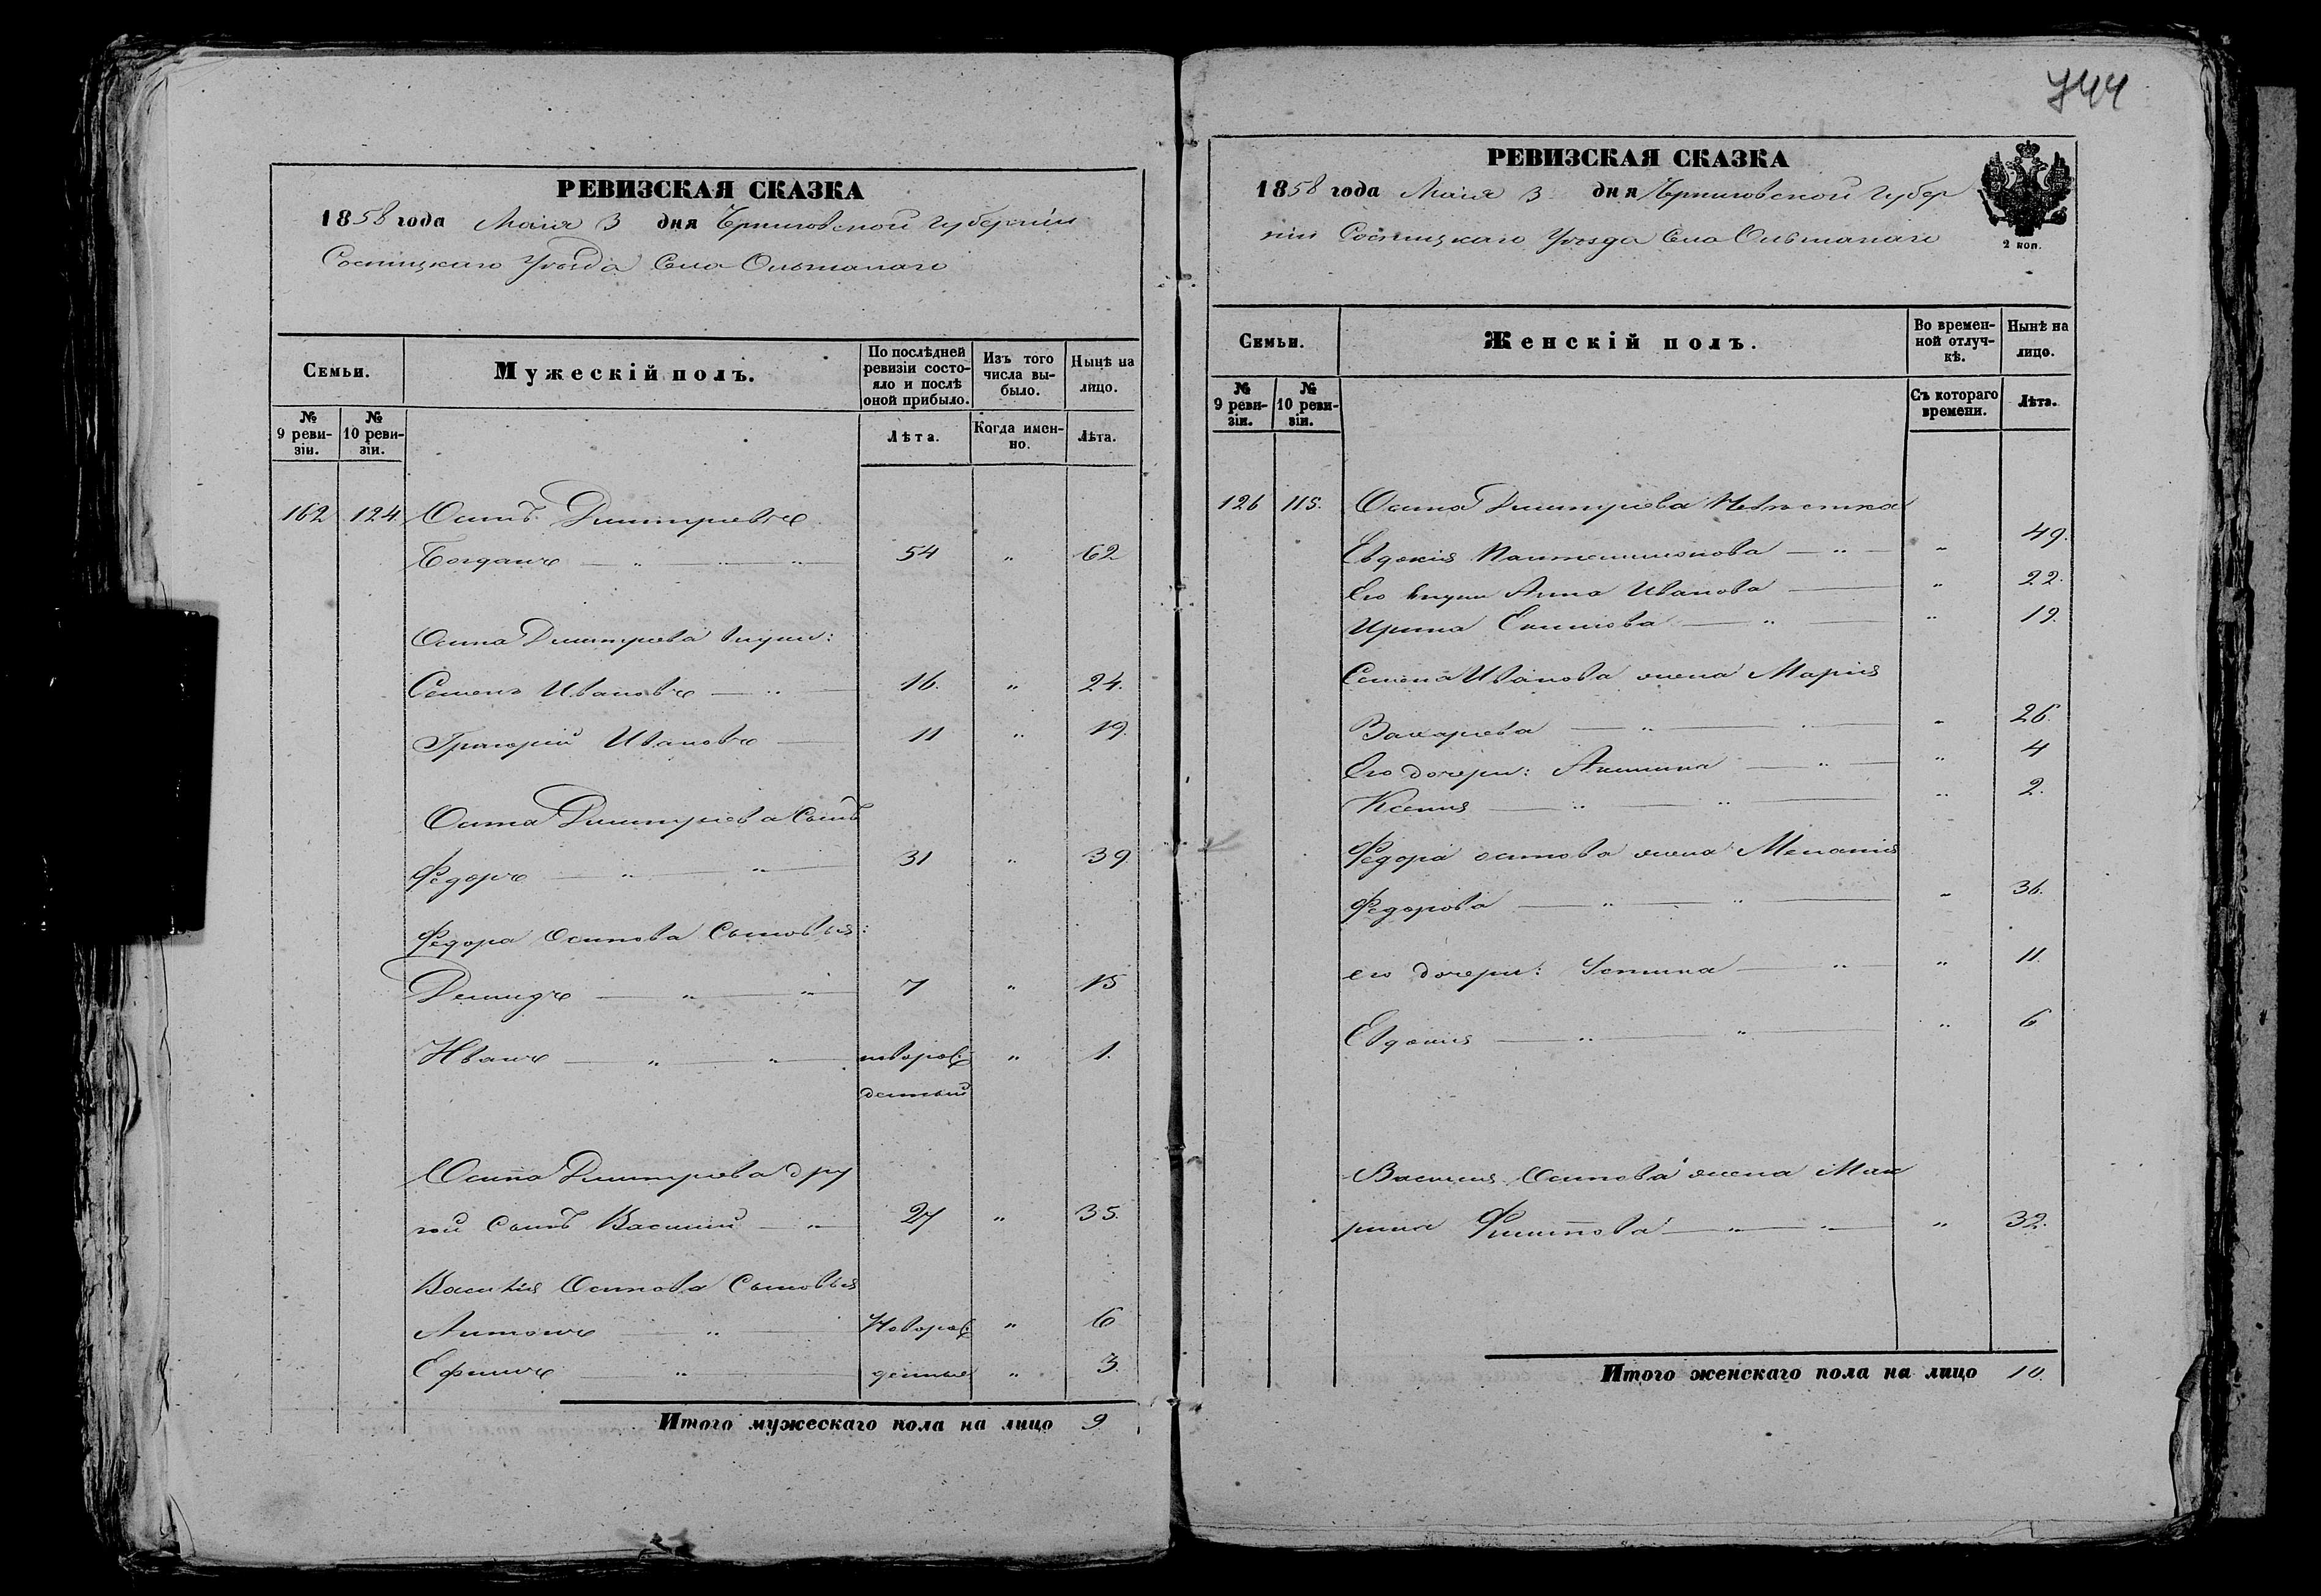 РЕВИЗСКАЯ СКАЗКА
1858 года Маія 3 дня Черниговской Губерніи
Сосницкаго Уѣзда Села Ольшанаго
Семьи.
Мужескій полъ.
По послѣдней ревизіи состо-
яло и послѣ
оной прибыло.
Изъ того
числа вы-
было.
Нынѣ на
лицо.
№
9 реви-
зіи.
№
10 реви-
зіи.
Лѣта.
Когда имен-
но.
Лѣта.
162 124 Осипъ Дмитріевъ
Богданъ — „ — „ 54 „ 62
Осипа Дмитріева внуки:
Семенъ Ивановъ — „ 16. „ 24.
Григорій Ивановъ — 11 „ 19.
Осипа Дмитріева Сынъ
Федоръ — „ — „ 31 „ 39
Федора Осипова Сыновья:
Демидъ — „ — „ 7 „ 15
Иванъ — „ — „ новорож- „ 1.
денный
Осипа Дмитріева дру
гой Сынъ Василий — „ 27 „ 35.
Василія Осипова Сыновья
Антонъ — „ — Новорож „ 6
Ефимъ — „ — денные „ 3.
Итого мужескаго пола на лицо 9
744
РЕВИЗСКАЯ СКАЗКА
2 коп.
1858 года Маія 3 дня Черниговской Губер
ніи Сосницкаго Уѣзда Села Ольшанаго
Семьи.
Женскій полъ.
Во времен-
ной отлуч-
кѣ.
Нынѣ на
лицо.
№
9 реви-
зіи.
№
10 реви-
зіи.
Съ котораго
времени.
Лѣта.
126 115. Осипа Дмитріева Невѣстка
Евдокія Пантелимонова — „ — „ 49.
Его внуки Анна Иванова — „ 22.
Ирина Екимова — „ — „ 19.
Семена Иванова жена Марія
Захарьева — „ — „ 26.
Его дочери: Акилина — „ — „ 4
Ксенія — „ — „ — „ 2.
Федора осипова жена Меланія
Федорова — „ — „ — „ 36.
его дочери: Устина — „ „ 11.
Евдокія — „ — „ — „ 6
Василія Осипова жена Мак
рина Филипова — „ — „ — „ 32.
Итого женскаго пола на лицо 10.